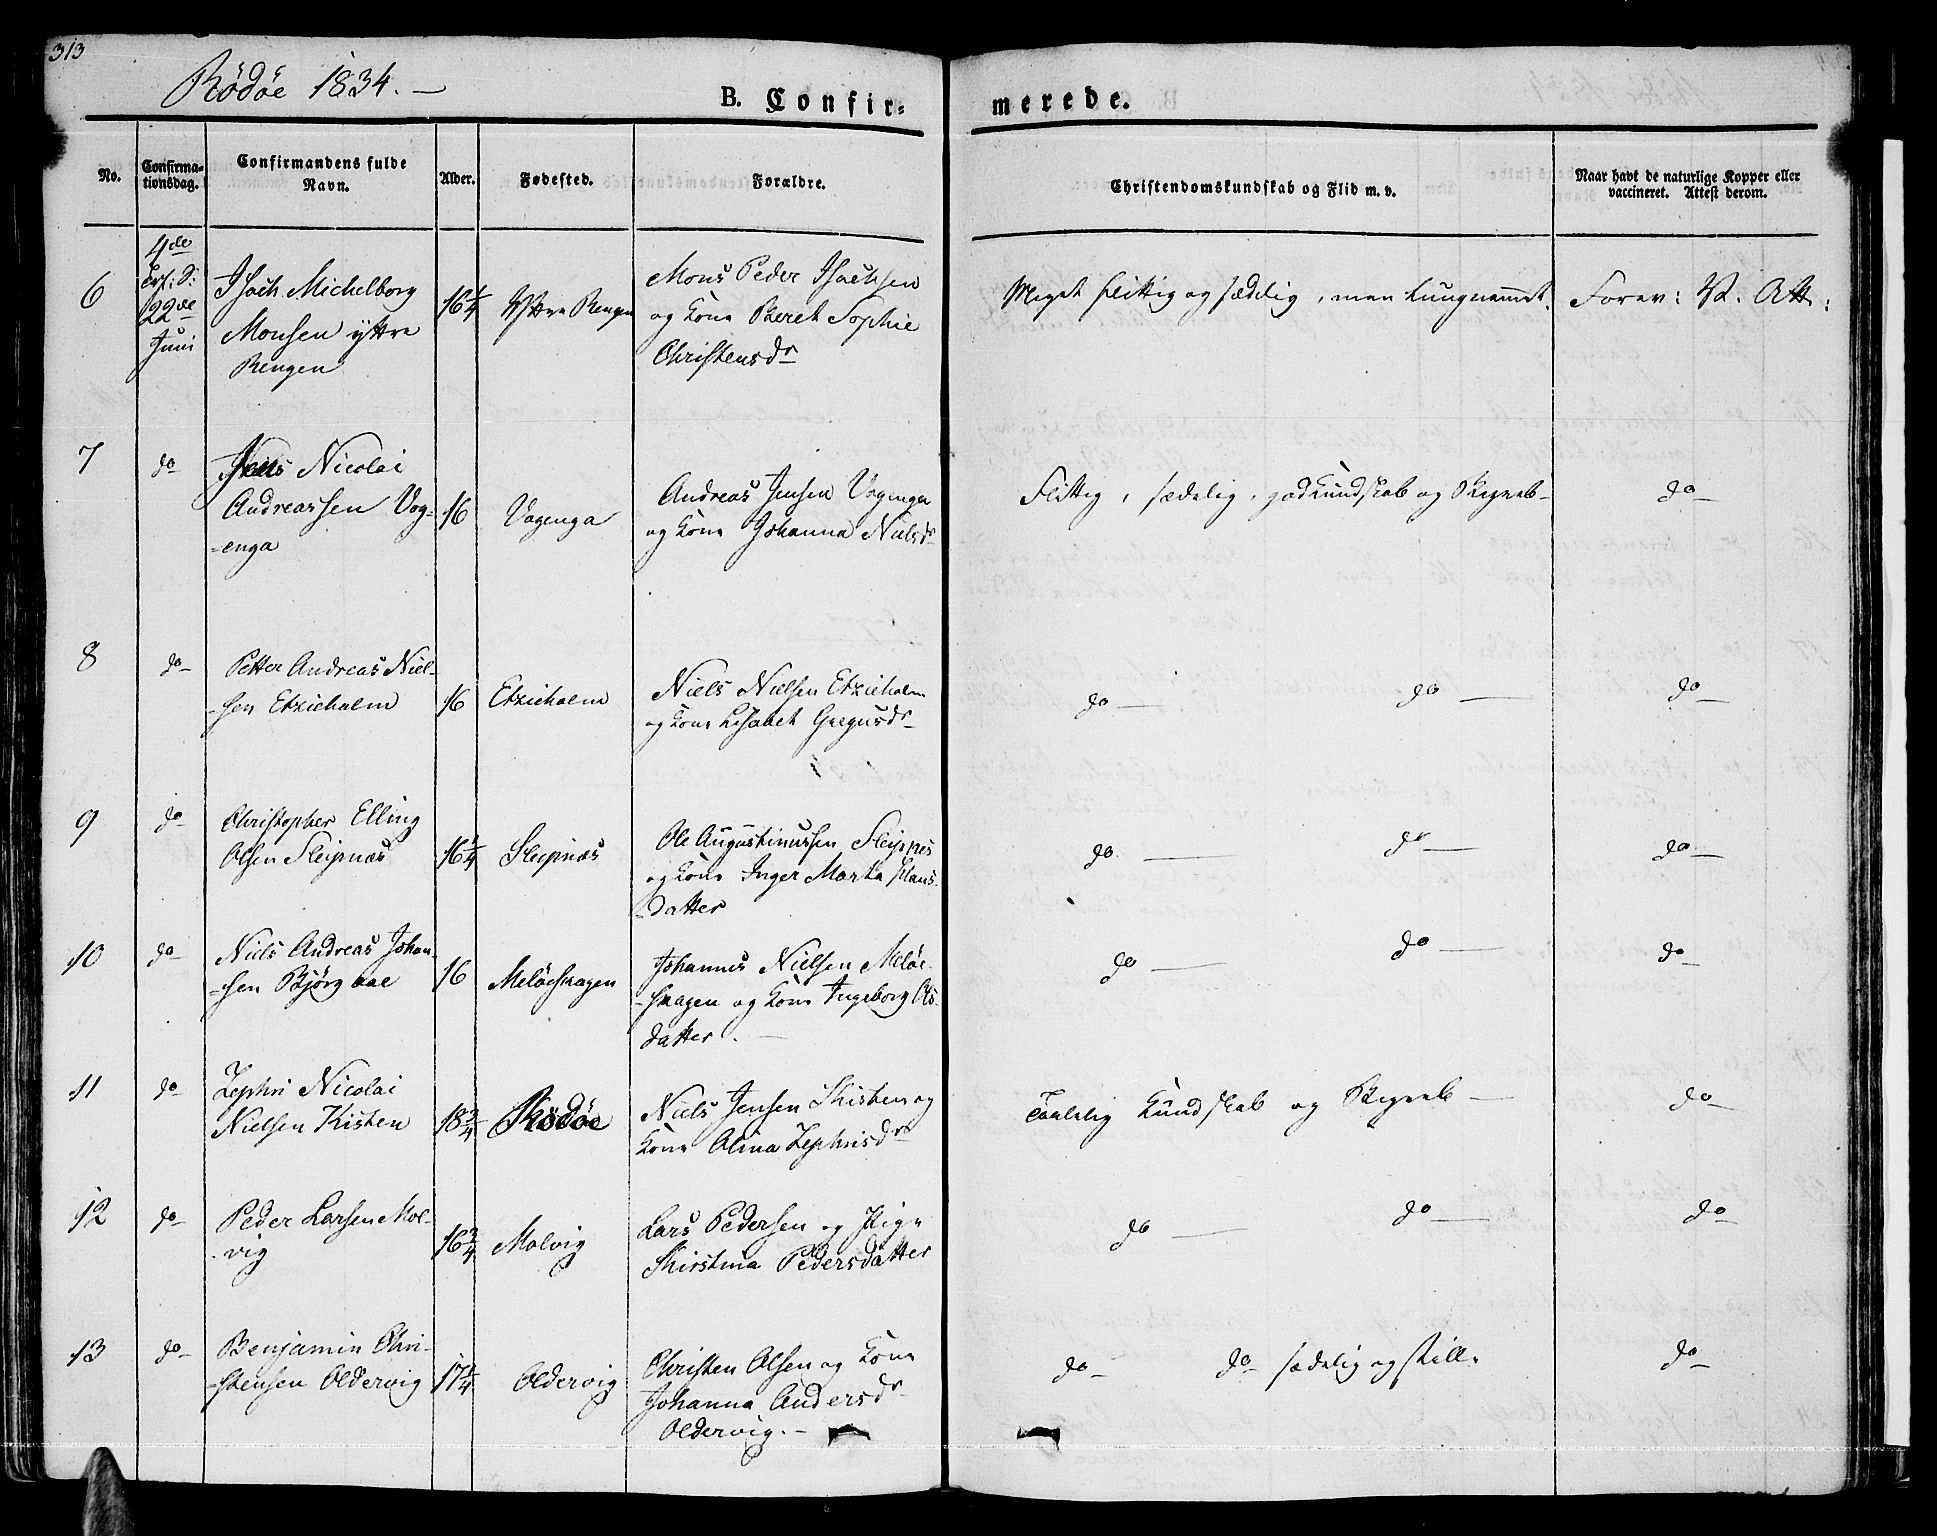 313
Rödöe 1834. —
B. Confir-
merede.
No.
Confirma-
tionsdag.
Confirmandens fulde
Navn.
Alder.
Fødested.
Forældre.
Christendomskundskab og Flid m. v.
Naar havt de naturlige Kopper eller
vaccineret. Attest derom.
6
4de
22de
Juni
Isach Michelborg
Monsen yttre
Rengen
16 1/4
Yttre Rengen
Mons Peder Isachsen
og Kone Beret Sophie
Christensdr
Meget flittig og sædelig, men tungnemmet.
Forev: V. Att:
7
do
Nicolai
Andreassen Vog-
-enga
16
Vogenga
Andreas Jensen Vogenga
og Kone Johanna Nielsdr
Flittig, sædelig, god Kundskab og Begreb-
do
8
do
Petter Andreas Niel-
-sen Etzieholm
16
Etzieholm
Niels Nielsen Etzieholm
og Kone Lisabet Gregusdr
do —
do —
do
9
do
Christopher Elling
Olsen Sleipnæs
16 1/4
Sleipnæs
Ole Augustinussen Sleipnes
og Kone Inger Marta Hans-
-datter
do —
do —
do
10
do
Niels Andreas Johan-
-sen Bjørg aae
16
Melöeskagen
Johannes Nielsen Melöe-
-skagen og Kone Ingeborg Ols-
datter. —
do —
do —
do
11
do
Zephri Nicolai
Nielsen Kisten
18 3/4
Rödöe
Niels Jensen Kisten og
Kone Olina Zephrisdr
Taalelig Kundskab og Begreb —
do
12
do
Peder Larsen Mol-
-vig
16 3/4
Molvig
Lars Pedersen og Pige
Kirstina Pedersdatter
do —
do —
do
13
do
Benjamin Chri-
-stensen Oldervig
17 1/4
Oldervig
Christen Olsen og Kone
Johanna Andersdr
Oldervig. —
do — do sædelig og stille
do